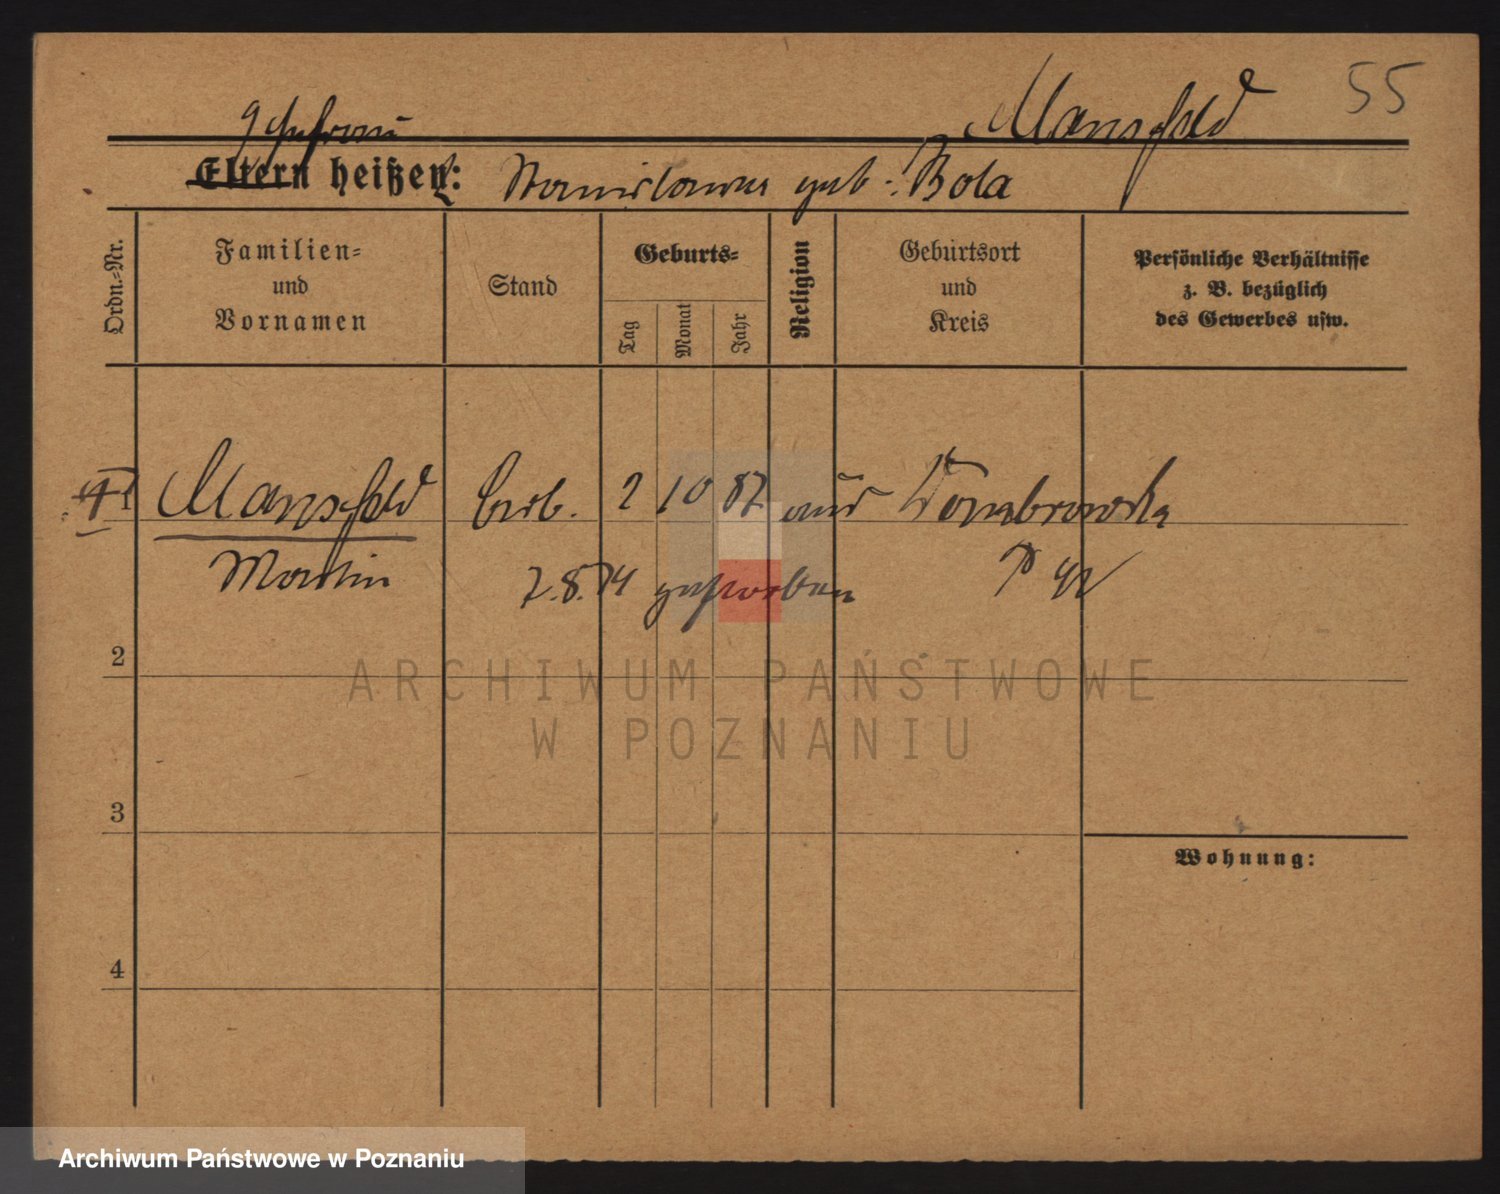 55
Mansfeld
Ehefrau
Eltern heißen: Stanislawa geb. Bola
Ordn.-Nr.
Familien-
und
Vornamen
Stand
Geburts-
Tag
Monat
Jahr
Religion
Geburtsort
und
Kreis
Persönliche Verhältnisse
z. B. bezüglich
des Gewerbes usw.
1 Mansfeld Arb. 2 10 87 aus Dombrowka
Martin 7.8.14 gestorben
2
ARCHIWUM PAŃSTWOWE
W POZNANIU
3
Wohnung:
4
Archiwum Państwowe w Poznaniu